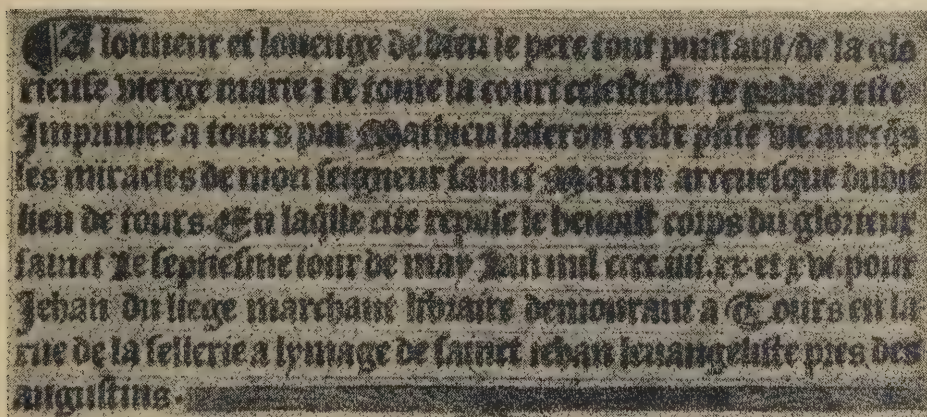 A lonneur et louenge de dieu le pere tout puissant/de la glo
rieuse vierge marie ⁊ de toute la court celestielle de padis a este
Imprimee a tours par Mathieu lateron ceste pn̄te vie auecq̄s
les miracles de mon seigneur sainct Martin arceuesque dudit
lieu de tours. En laq̄lle cite repose le benoist corps du glorieux
sainct Le septiesme iour de may Lan mil cccc.iiii.xx. et xvi. pour
Jehan du liege marchant libraire demourant a Tours en la
rue de la sellerie a lymage de sainct iehan leuangeliste pres des
augustins.